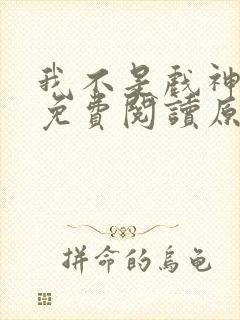 我不是戲神
免費閱讀原
拼命的烏龜